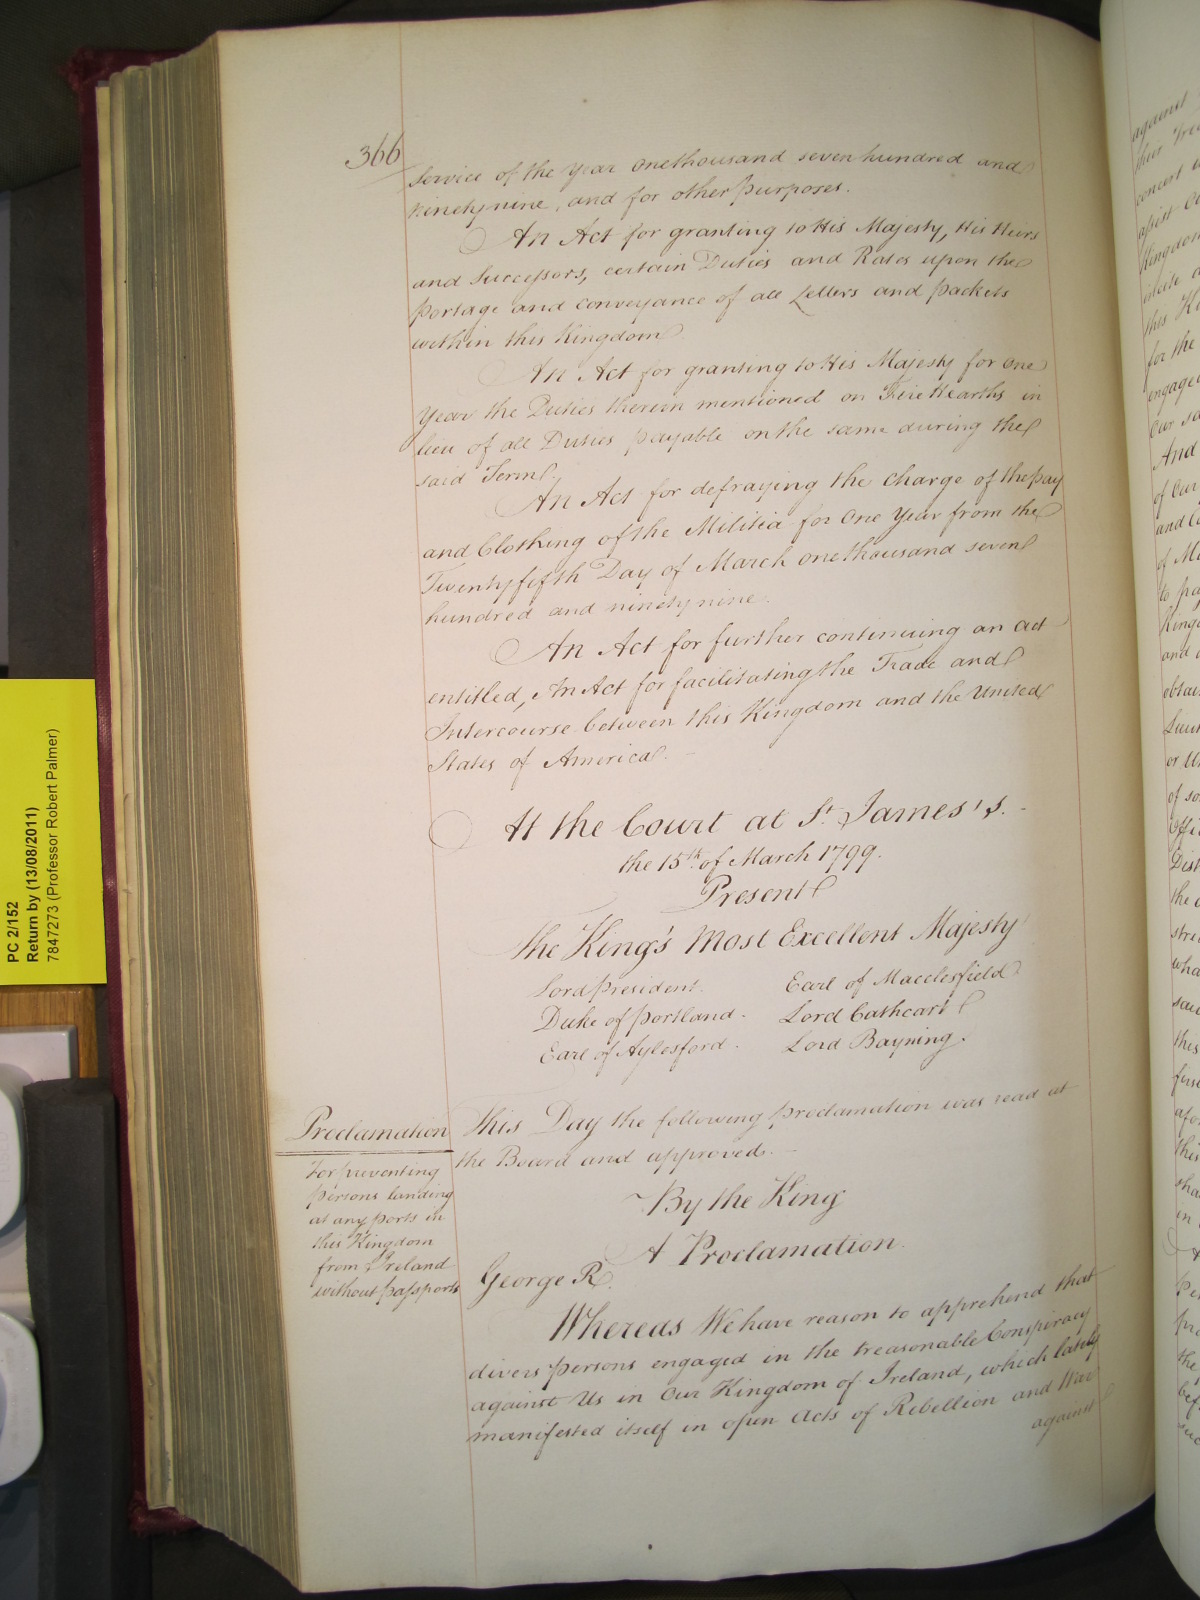 366
Service of the Year one thousand seven hundred and
ninety nine, and for other purposes.
An Act for granting to His Majesty, His Heirs
and Successors, certain Duties and Rates upon the
portage and conveyance of all Letters and packets
within this Kingdom
An Act for granting to His Majesty for one
Year the Duties therein mentioned on Fire Hearths in
lieu of all Duties payable on the same during the
said Term.
An Act for defraying the charge of the pay
and Clothing of the Militia for One Year from the
Twenty fifth Day of March one thousand seven
hundred and ninety nine.
An Act for further continuing an act
entitled, An Act for facilitating the Trade and
Intercourse between this Kingdom and the United
States of America. -
At the Court at St. James's. -
the 15th. of March 1799.
Present
The King's Most Excellent Majesty
Lord president. Earl of Macclesfield
Duke of portland. Lord Cathcart
Earl of Aylesford. Lord Bayning.
Proclamation
For preventing
persons landing
at any ports in
this Kingdom
from Ireland
without passports
This Day the following proclamation was read at
the Board and approved. -
By the King
A Proclamation.
George R.
Whereas We have reason to apprehend that
divers persons engaged in the treasonable Conspiracy
against Us in Our Kingdom of Ireland, which lately
manifested itself in open Acts of Rebellion and War
against
PC 2/152
Return by (13/08/2011)
7847273 (Professor Robert Palmer)
against
concert
Kingdom
this
for the
engaged
Our
And
of Our
to
and
of
the
this
in